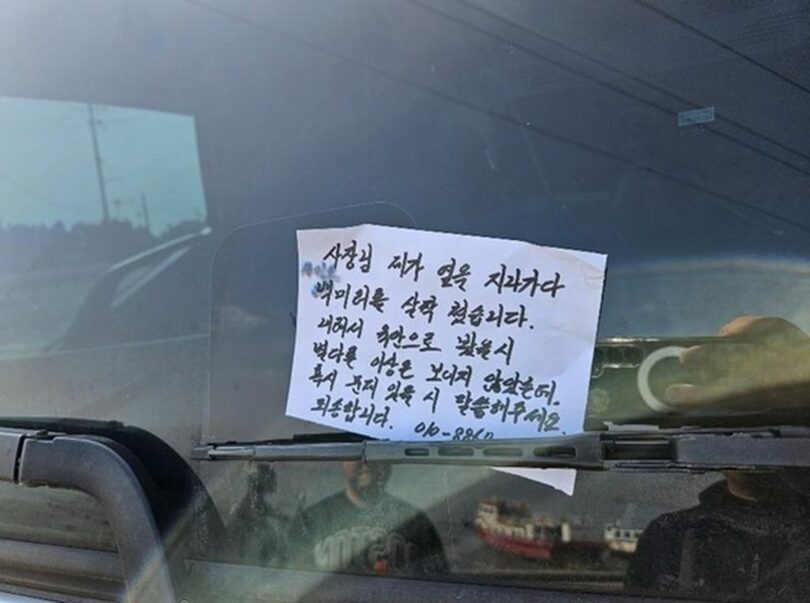 사장님 제가 옆을 지나가다
백미러를 살짝 쳤습니다.
육안으로 봤을시
별다른 이상은 보이지 않았는데.
혹시 문제 있을 시 말씀해주세요.
죄송합니다. 010-886